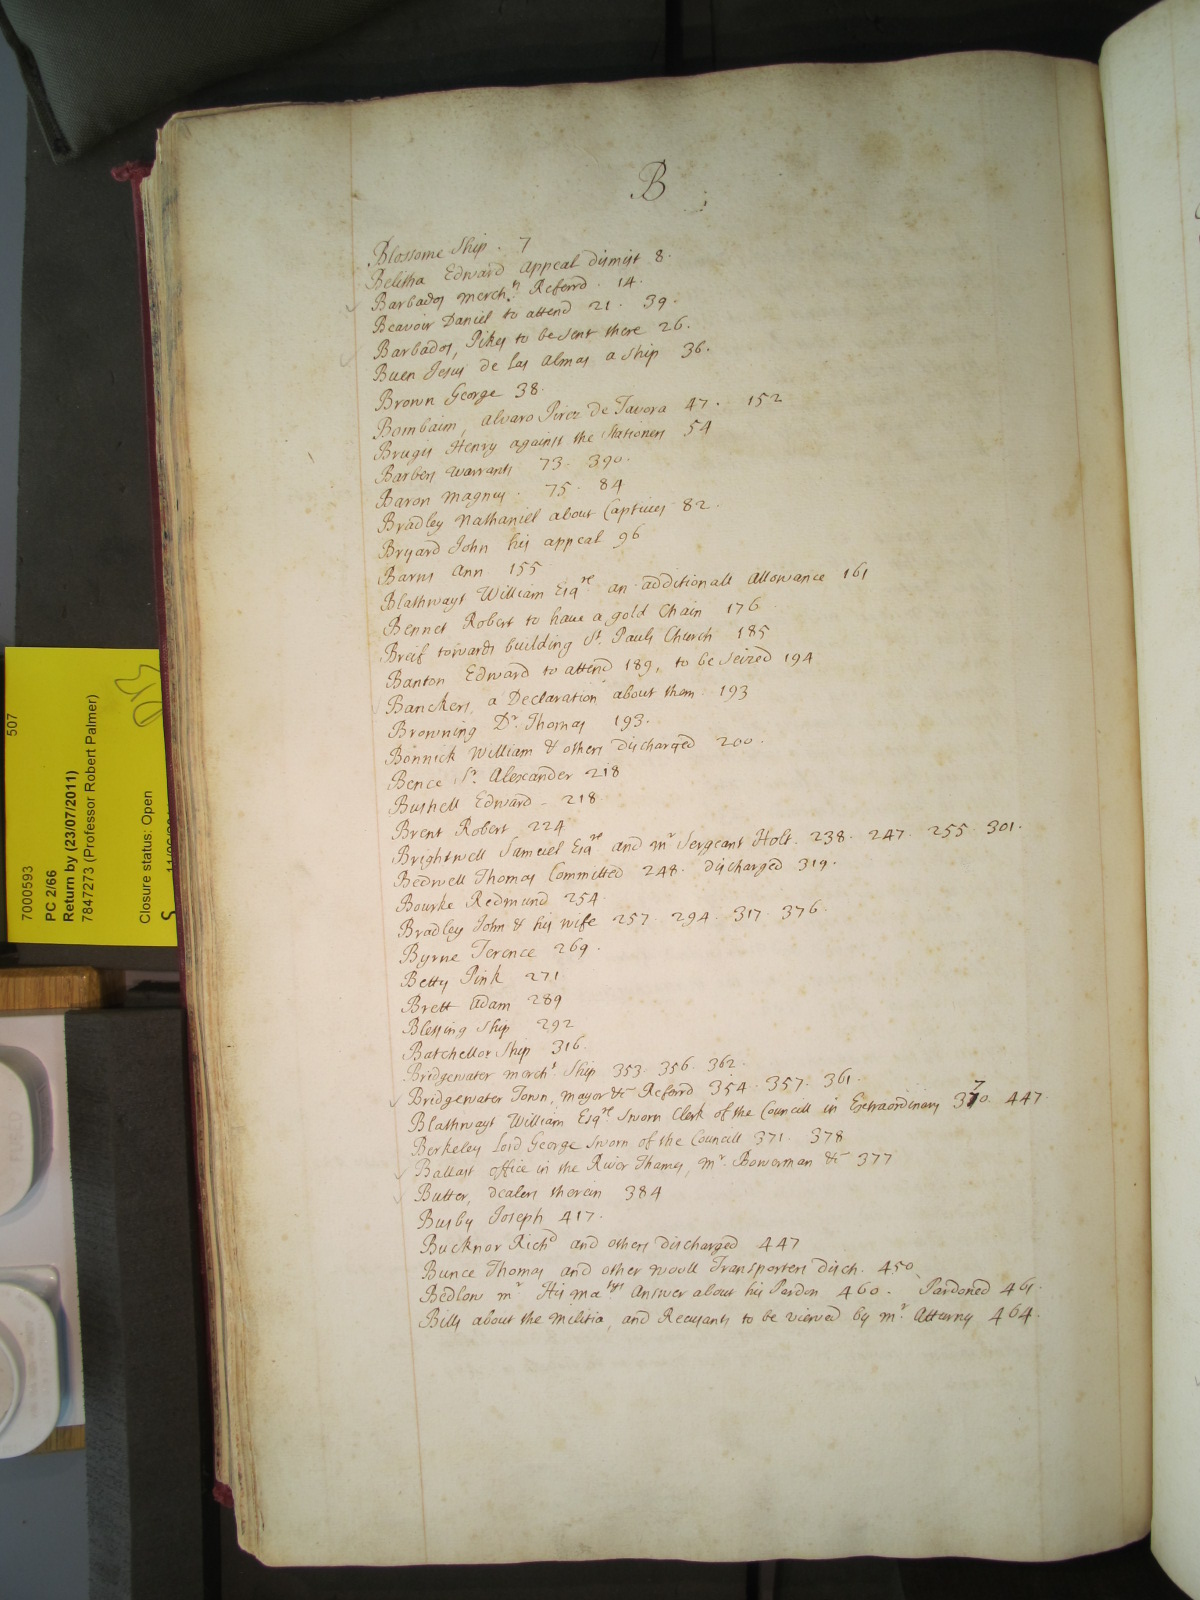 B
Blossome Ship . 7
Belitha Edward appeal dismist 8.
Barbados merch.ts Referrd . 14.
Beavoir Daniel to attend 21. 39.
Barbados, Pikes to be sent there 26.
Buen Jesus de las almas a ship 36.
Brown George 38.
Bombaim, alvaro Perez de Tavora 47. 152
Brugis Henry against the Stationers 54
Barbers warrants 73. 390.
Baron Magnus. 75. 84
Bradley Nathaniel about Captives 82.
Bryard John his appeal 96
Barns Ann 155
Blathwayt William Esqre an additionall Allowance 161
Bennet Robert to have a gold Chain 176
Breif towards building St. Pauls Church 185
Banton Edward to attend 189, to be seized 194
Banckers, a Declaration about them 193
Browning Dr. Thomas 193.
Bonnick William & others discharged 200.
Bence Sr. Alexander 218
Bushell Edward - 218
Brent Robert 224
Brightwell Samuel Esqre and mr Sergeant Holt. 238. 247. 255. 301.
Bedwell Thomas Committed 248. discharged 319.
Bourke Redmund 254
Bradley John & his wife 257. 294. 317. 376.
Byrne Terence 269.
Betty Pink 271
Brett Adam 289
Blessing Ship 292
Batchellor Ship 316.
Bridgewater mercht. Ship 353. 356. 362.
Bridgewater Town, mayor &c Referrd 354. 357. 361.
Blathwayt William Esqre Sworn Clerk of the Councill in Extraordinary 370. 447.
Berkeley Lord George Sworn of the Councill 371. 378
Ballast office in the River Thames, mr. Bowerman &c 377
Butter, dealers therein 384
Busby Joseph 417.
Bucknor Richd and others discharged 447
Bunce Thomas and other wooll Transporters disch. 450
Bedlow mr His matys Answer about his Pardon 460. Pardoned 461.
Bills about the Militia, and Recusants to be viewed by mr. Atturny 464.
507
7000593
PC 2/66
Return by (23/07/2011)
7847273 (Professor Robert Palmer)
Closure status: Open